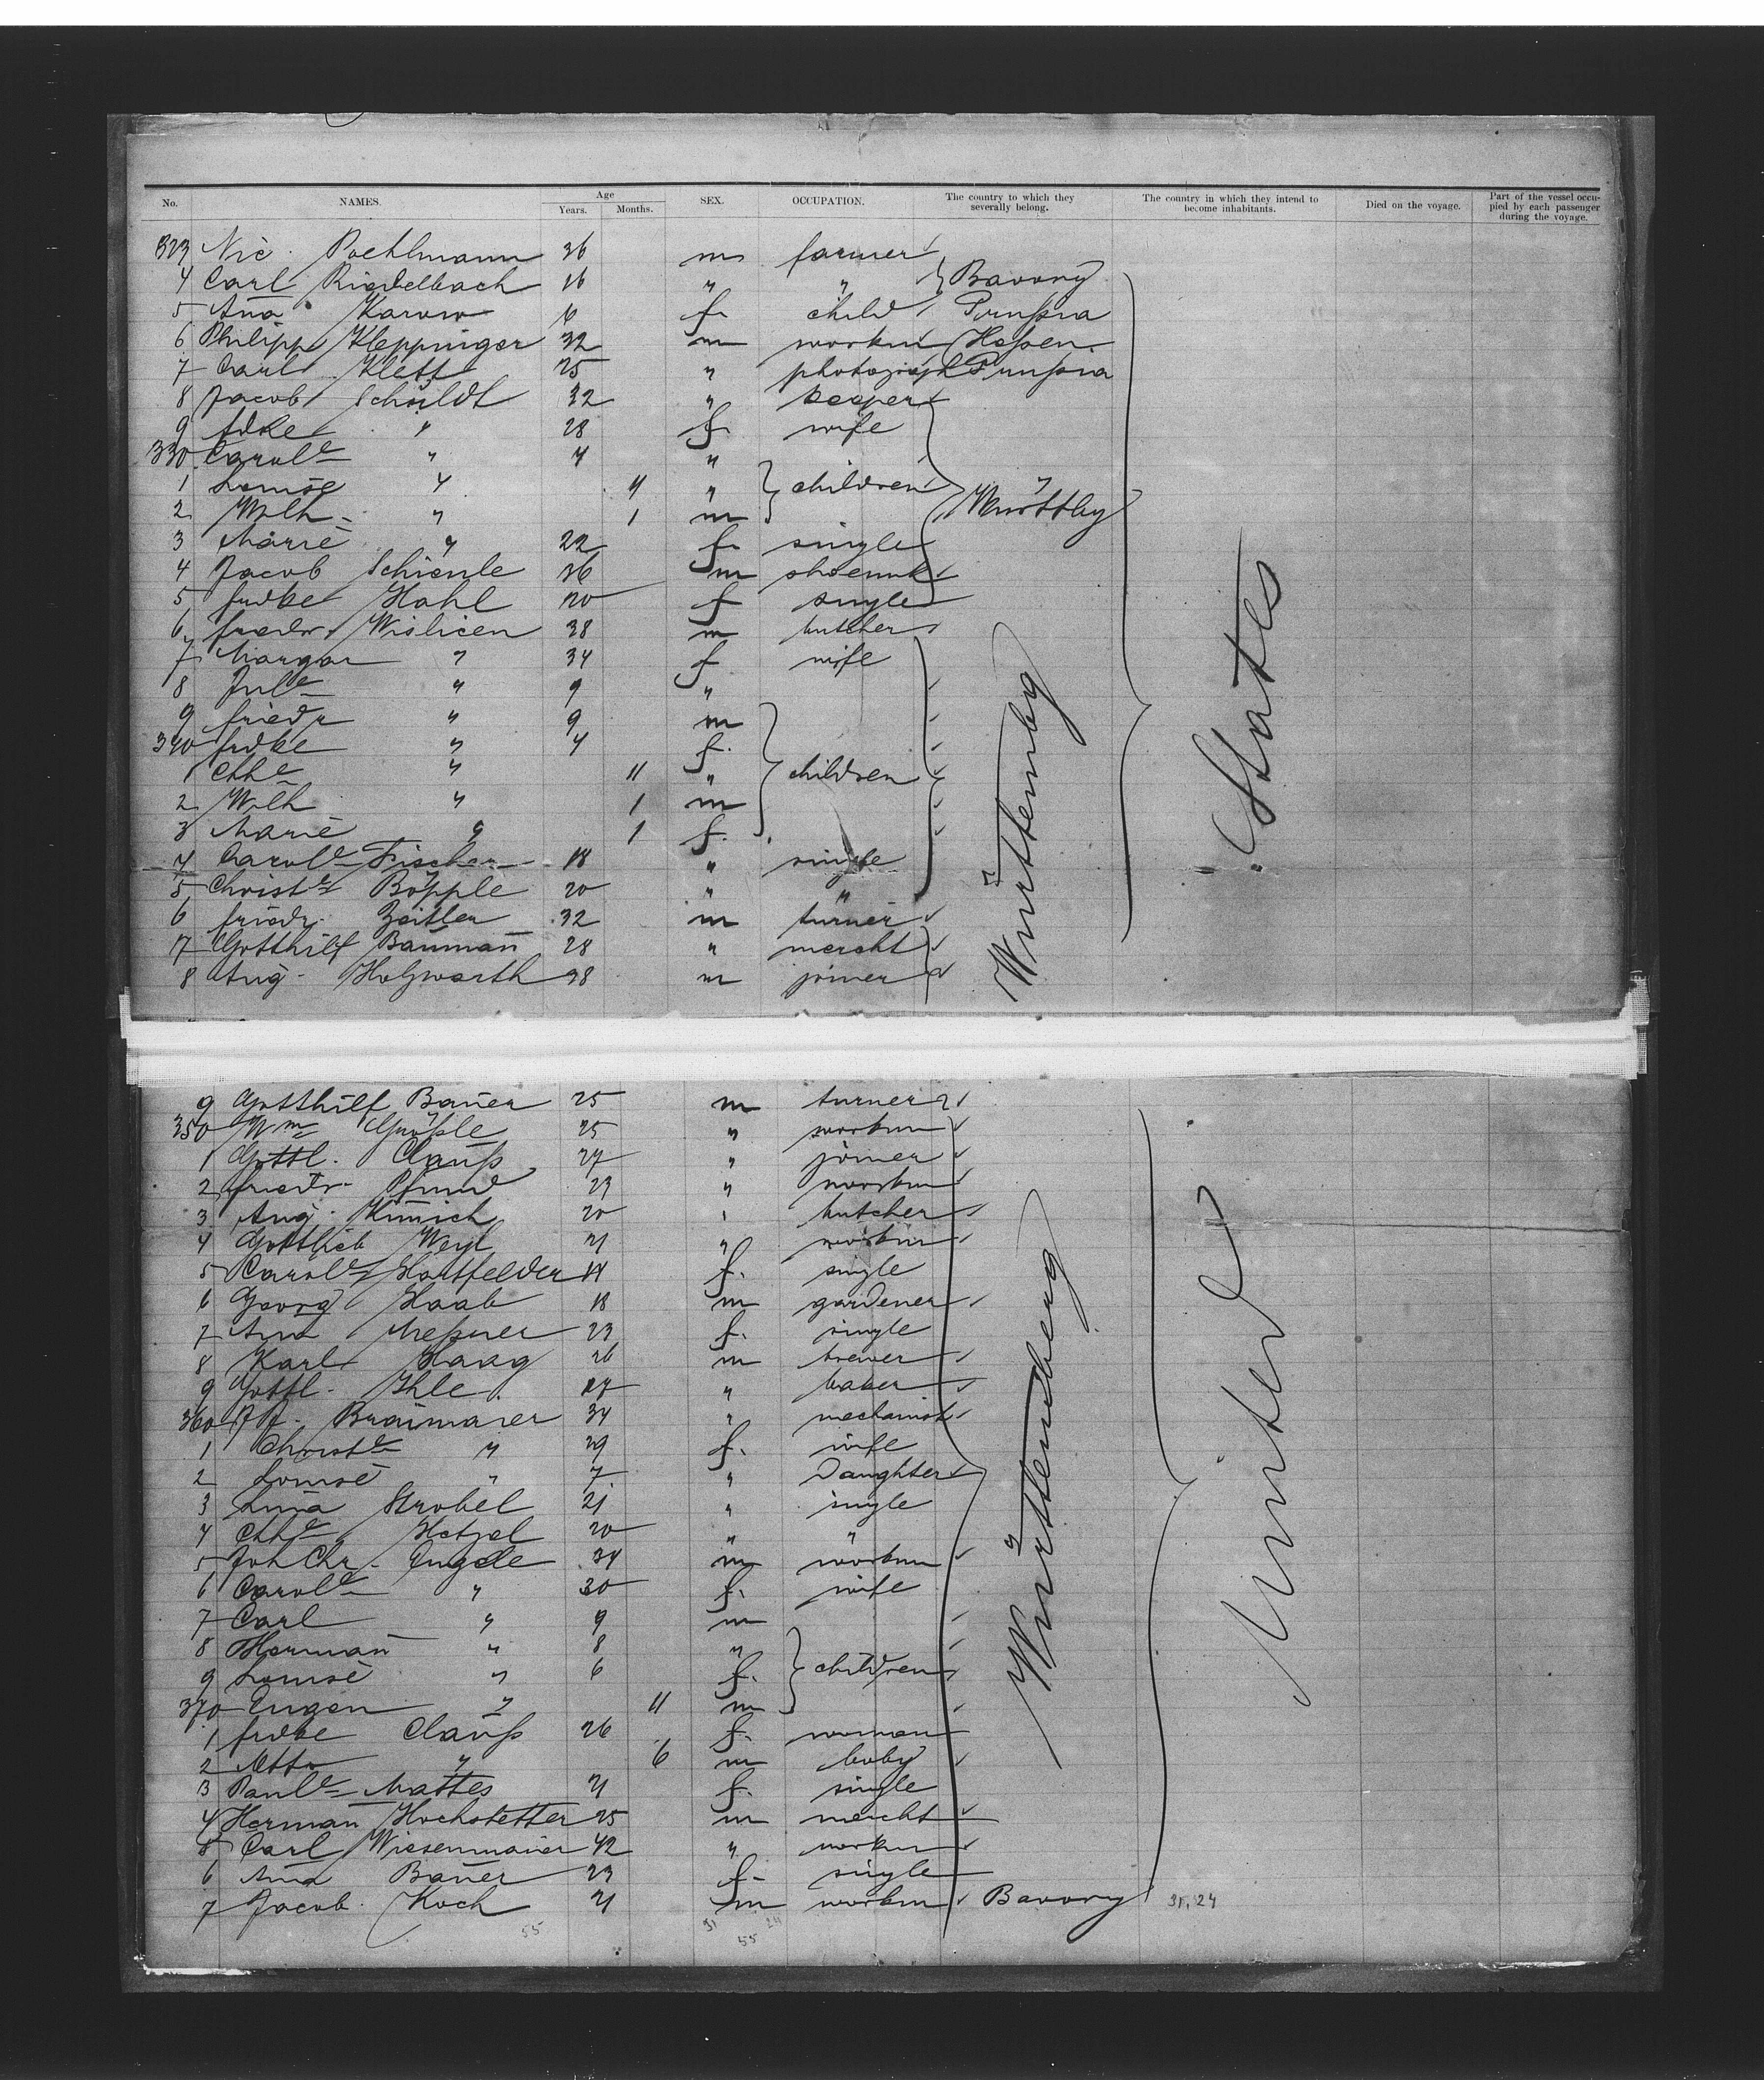 No. NAMES. Age Years. Months. SEX. OCCUPATION. The country to which they severally belong. The country in which they intend to become inhabitants. Died on the voyage. Part of the vessel occupied by each passenger during the voyage.
323 Nic. Poehlmann 36 m farmer
4 Carl Riedelbach 16 " " Bavory
5 Ana Karow 6 f. child Prußia
6 Philipp Kleppinger 32 m workm Heßen
7 Carl Klett 25 " photograph Prußia
8 Jacob Schüldt 32 "
9 fdke " 28 f. wife
330 Carole " 4 "
1 Louise " 4 " children
2 Wilh. " 1 m Württbg
3 Marie " 22 f. single
4 Jacob Schienle 36 m shoemk
5 frdke Hahl 20 f single
6 friedr. Wislicen 38 m butcher
7 Margar " 34 f wife
8 Jule " 9 "
9 friedr " 9 m
340 frdke " 4 f.
1 Chle " 11 " children
2 Wilh " 1 m
3 Marie " 1 f.
4 Carole Fischer 18 " single
5 Christe Böpple 20 " "
6 friedr. Zeitler 32 m turner
7 Gotthilf Baumañ 28 " mercht
8 Aug. Holzwarth 38 m joiner
Württembg
States
9 Gotthilf Bauer 25 m turner
350 Wm 25 " workm
1 Gottl. Clauß 27 " joiner
2 friedr. Pfund 23 " workm
3 Aug. Kimich 20 " butcher
4 Gottlieb Weyl 21 " workm
5 Carole Hartfelder f. single
6 Georg Haab 18 m gardener
7 Ana Meßner 23 f. single
8 Karl Haag 26 m brewer
9 Gottl. Ihle 27 " baker
360 Braimaier 34 " mechanist
1 Christe " 29 f. wife
2 Louise " 7 " Daughter
3 Lina Strobel 21 " single
4 Chle Hetzel 20 " "
5 Joh Chr. Engele 34 m workm
6 Carole " 30 f. wife
7 Carl " 9 m
8 Hermañ " 8 "
9 Louise " 6 f. children
370 Eugen " 11 m
1 frdke Clauß 26 f. woman
2 Otto " 6 m baby
3 Paule Mattes 21 f. single
4 Hermañ Hochstetter 25 m mercht
5 Carl Wiesenmaier 42 " workm
6 Ana Bauer 23 f. single
7 Jacob Koch 21 m workm Bavory 31,24
Württemberg
United
55 31 24
55